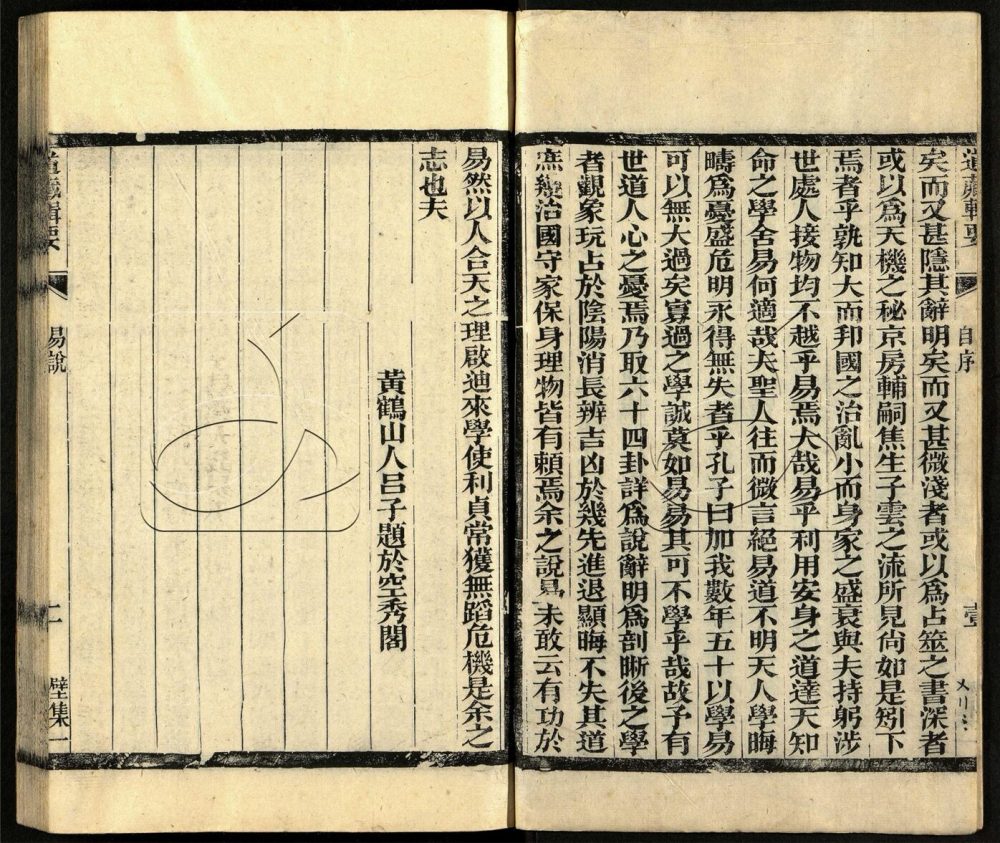 道藏輯要
自序
壹
矣而又甚隱其辭明矣而又甚微淺者或以爲占筮之書深者
或以爲天機之秘京房輔嗣焦生子雲之流所見尙如是矧下
焉者乎孰知大而邦國之治亂小而身家之盛衰與夫持躬涉
世處人接物均不越乎易焉大哉易乎利用安身之道達天知
命之學舍易何適哉夫聖人往而微言絕易道不明天人學晦
疇爲憂盛危明永得無失者乎孔子曰加我數年五十以學易
可以無大過矣寡過之學誠莫如易易其可不學乎哉故予有
世道人心之憂焉乃取六十四卦詳爲說辭明爲剖晰後之學
者觀象玩占於陰陽消長辨吉凶於幾先進退顯晦不失其道
庶幾治國守家保身理物皆有賴焉余之說易未敢云有功於
易然以人合天之理啟迪來學使利貞常獲無蹈危機是余之
志也夫
黃鶴山人呂子題於空秀閣
道藏輯要
易說
二
壁集一